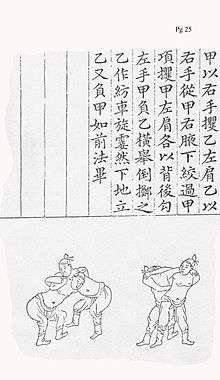 Pg 25
甲以右手攫乙左肩乙以
右手從甲右腋下絞過甲
項攫甲左肩各以背後勾
左手甲負乙橫舉倒擲之
乙作紡車旋霎然下地立
乙又負甲如前法畢